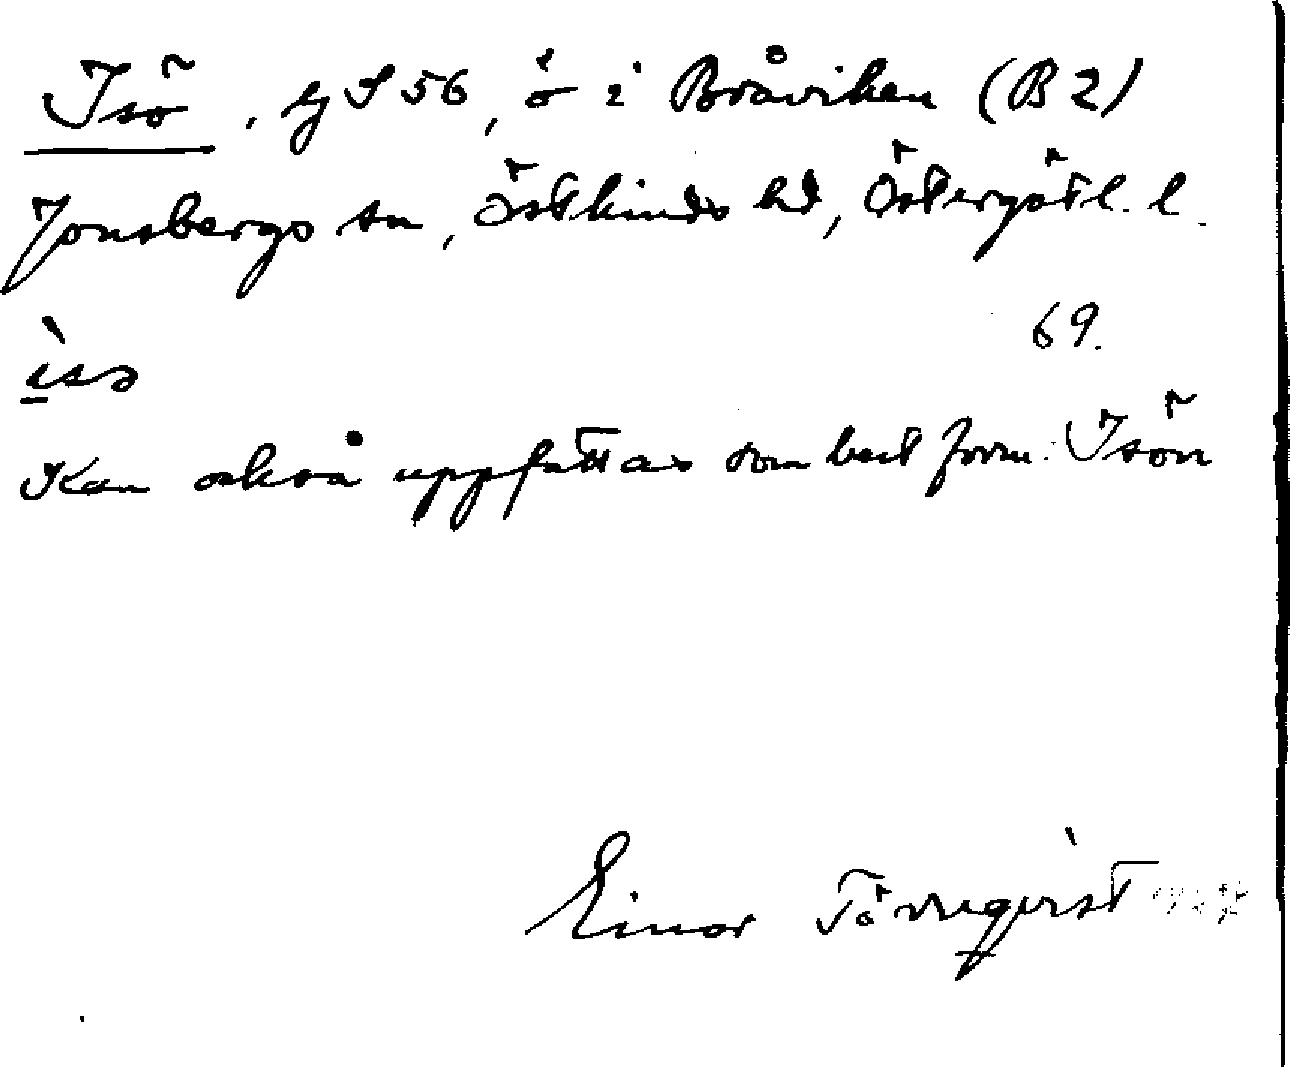 Isö, g S 56, ö i Bråviken (B 2)
Jonsbergs sn, Östkinds hd, Östergötl. l.
69.
Kan också uppfattas som best form: Isön
Einar Törnqvist